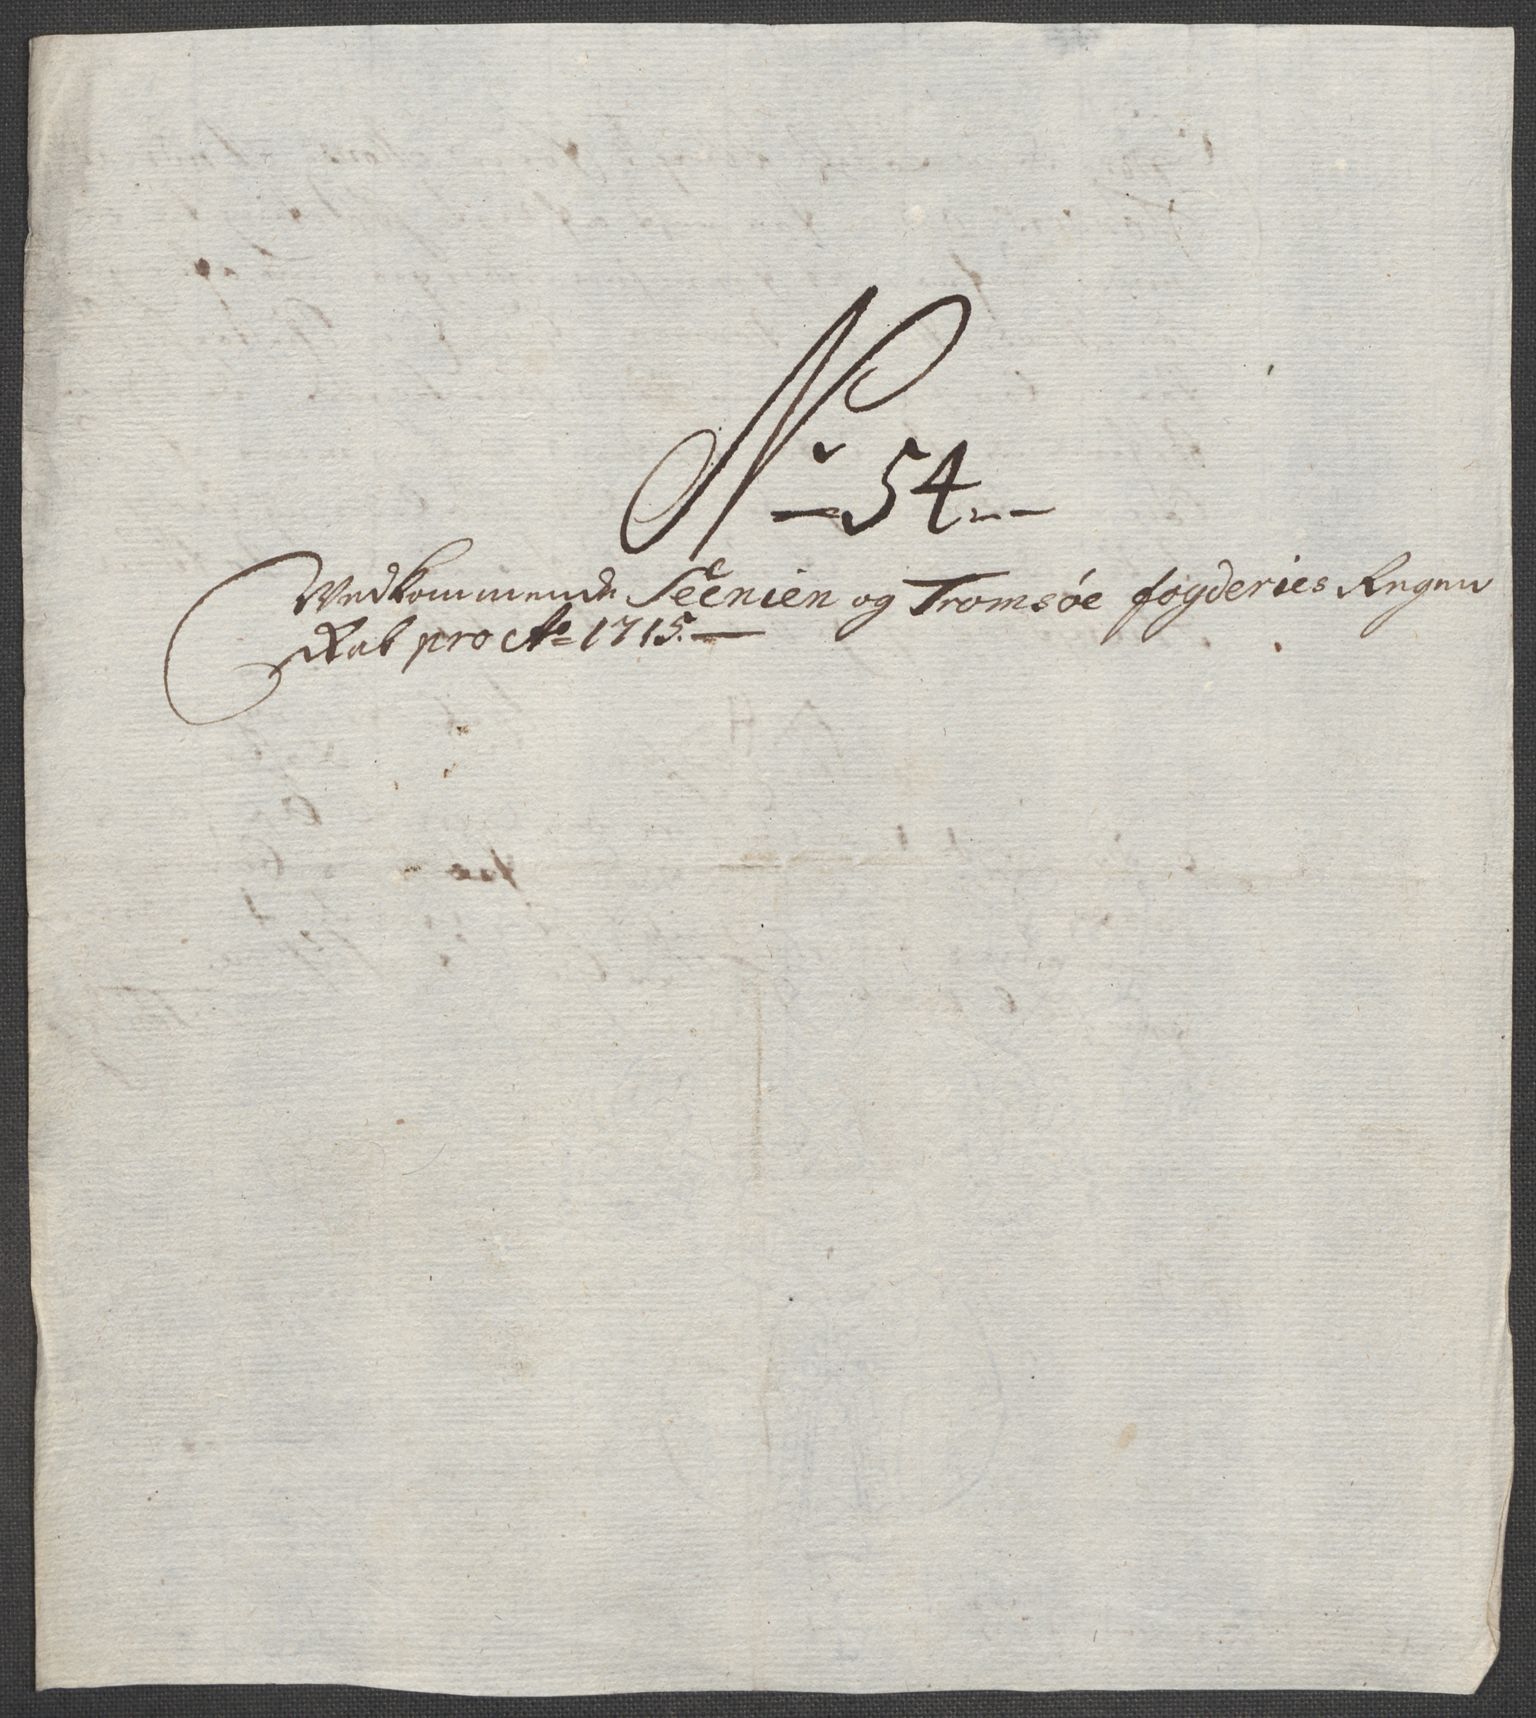 No 54.
Vedkommende Seenien og Tromsøe fogderies Regen
skab pro Ao 1715.